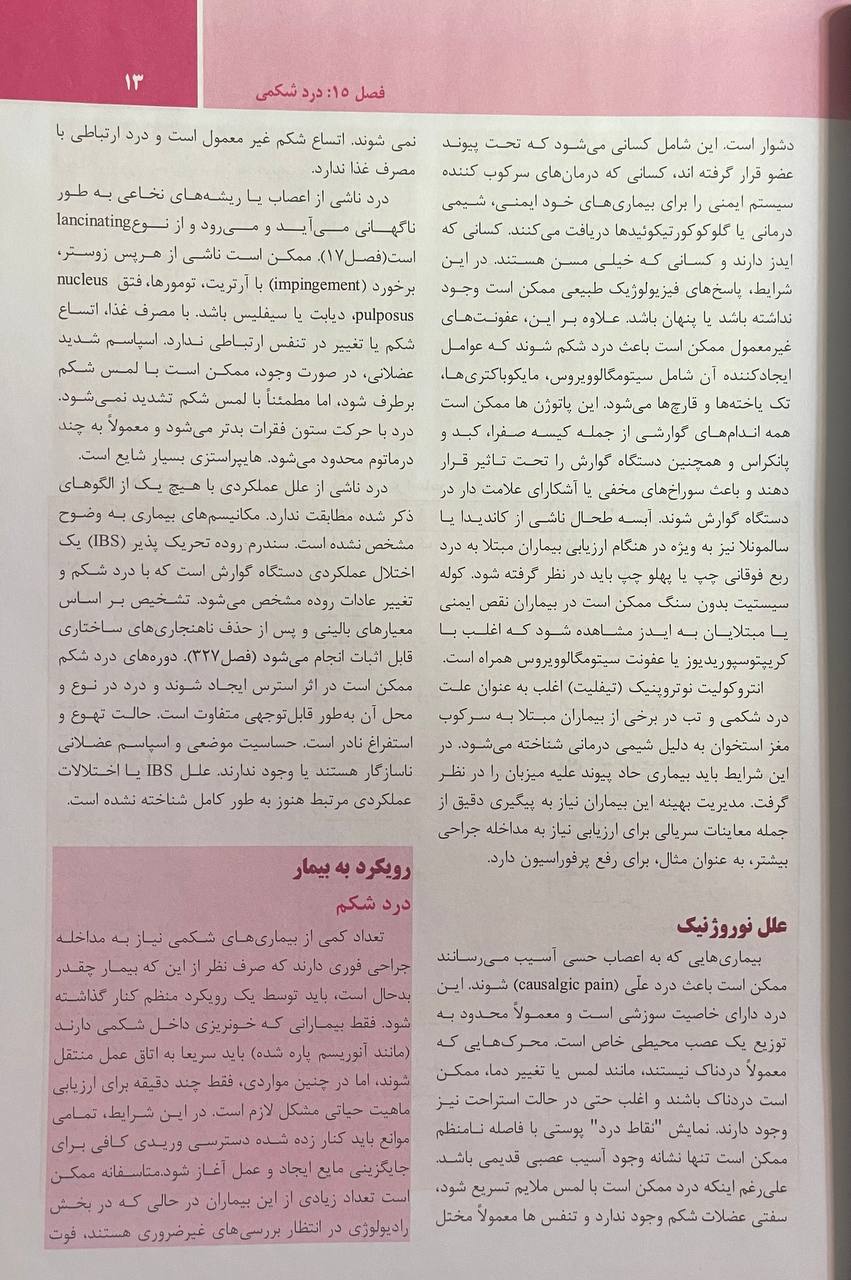 ۱۳
فصل ۱۵: درد شکمی
دشوار است. این شامل کسانی می‌شود که تحت پیوند
عضو قرار گرفته اند، کسانی که درمان‌های سرکوب کننده
سیستم ایمنی را برای بیماری‌های خود ایمنی، شیمی
درمانی یا گلوکوکورتیکوئیدها دریافت می‌کنند. کسانی که
ایدز دارند و کسانی که خیلی مسن هستند. در این
شرایط، پاسخ‌های فیزیولوژیک طبیعی ممکن است وجود
نداشته باشد یا پنهان باشد. علاوه بر این، عفونت‌های
غیرمعمول ممکن است باعث درد شکم شوند که عوامل
ایجادکننده آن شامل سیتومگالوویروس، مایکوباکتری‌ها،
تک یاخته‌ها و قارچ‌ها می‌شود. این پاتوژن ها ممکن است
همه اندام‌های گوارشی از جمله کیسه صفرا، کبد و
پانکراس و همچنین دستگاه گوارش را تحت تاثیر قرار
دهند و باعث سوراخ‌های مخفی یا آشکارای علامت دار در
دستگاه گوارش شوند. آبسه طحال ناشی از کاندیدا یا
سالمونلا نیز به ویژه در هنگام ارزیابی بیماران مبتلا به درد
ربع فوقانی چپ یا پهلو چپ باید در نظر گرفته شود. کوله
سیستیت بدون سنگ ممکن است در بیماران نقص ایمنی
یا مبتلایان به ایدز مشاهده شود که اغلب با
کریپتوسپوریدیوز یا عفونت سیتومگالوویروس همراه است.
انتروکولیت نوتروپنیک (تیفلیت) اغلب به عنوان علت
درد شکمی و تب در برخی از بیماران مبتلا به سرکوب
مغز استخوان به دلیل شیمی درمانی شناخته می‌شود. در
این شرایط باید بیماری حاد پیوند علیه میزبان را در نظر
گرفت. مدیریت بهینه این بیماران نیاز به پیگیری دقیق از
جمله معاینات سریالی برای ارزیابی نیاز به مداخله جراحی
بیشتر، به عنوان مثال، برای رفع پرفوراسیون دارد.
علل نوروژنیک
بیماری‌هایی که به اعصاب حسی آسیب می‌رسانند
ممکن است باعث درد علّی (causalgic pain) شوند. این
درد دارای خاصیت سوزشی است و معمولاً محدود به
توزیع یک عصب محیطی خاص است. محرک‌هایی که
معمولاً دردناک نیستند، مانند لمس یا تغییر دما، ممکن
است دردناک باشند و اغلب حتی در حالت استراحت نیز
وجود دارند. نمایش "نقاط درد" پوستی با فاصله نامنظم
ممکن است تنها نشانه وجود آسیب عصبی قدیمی باشد.
علی‌رغم اینکه درد ممکن است با لمس ملایم تسریع شود،
سفتی عضلات شکم وجود ندارد و تنفس ها معمولاً مختل
نمی شوند. اتساع شکم غیر معمول است و درد ارتباطی با
مصرف غذا ندارد.
درد ناشی از اعصاب یا ریشه‌های نخاعی به طور
ناگهانی می‌آید و می‌رود و از نوع lancinating
است(فصل۱۷). ممکن است ناشی از هرپس زوستر،
برخورد (impingement) با آرتریت، تومورها، فتق nucleus
pulposus، دیابت یا سیفلیس باشد. با مصرف غذا، اتساع
شکم یا تغییر در تنفس ارتباطی ندارد. اسپاسم شدید
عضلانی، در صورت وجود، ممکن است با لمس شکم
برطرف شود، اما مطمئناً با لمس شکم تشدید نمی‌شود.
درد با حرکت ستون فقرات بدتر می‌شود و معمولاً به چند
درماتوم محدود می‌شود. هایپراستزی بسیار شایع است.
درد ناشی از علل عملکردی با هیچ یک از الگوهای
ذکر شده مطابقت ندارد. مکانیسم‌های بیماری به وضوح
مشخص نشده است. سندرم روده تحریک پذیر (IBS) یک
اختلال عملکردی دستگاه گوارش است که با درد شکم و
تغییر عادات روده مشخص می‌شود. تشخیص بر اساس
معیارهای بالینی و پس از حذف ناهنجاری‌های ساختاری
قابل اثبات انجام می‌شود (فصل۳۲۷). دوره‌های درد شکم
ممکن است در اثر استرس ایجاد شوند و درد در نوع و
محل آن به‌طور قابل‌توجهی متفاوت است. حالت تهوع و
استفراغ نادر است. حساسیت موضعی و اسپاسم عضلانی
ناسازگار هستند یا وجود ندارند. علل IBS یا اختلالات
عملکردی مرتبط هنوز به طور کامل شناخته نشده است.
رویکرد به بیمار
درد شکم
تعداد کمی از بیماری‌های شکمی نیاز به مداخله
جراحی فوری دارند که صرف نظر از این که بیمار چقدر
بدحال است، باید توسط یک رویکرد منظم کنار گذاشته
شود. فقط بیمارانی که خونریزی داخل شکمی دارند
(مانند آنوریسم پاره شده) باید سریعا به اتاق عمل منتقل
شوند، اما در چنین مواردی، فقط چند دقیقه برای ارزیابی
ماهیت حیاتی مشکل لازم است. در این شرایط، تمامی
موانع باید کنار زده شده دسترسی وریدی کافی برای
جایگزینی مایع ایجاد و عمل آغاز شود.متاسفانه ممکن
است تعداد زیادی از این بیماران در حالی که در بخش
رادیولوژی در انتظار بررسی‌های غیرضروری هستند، فوت